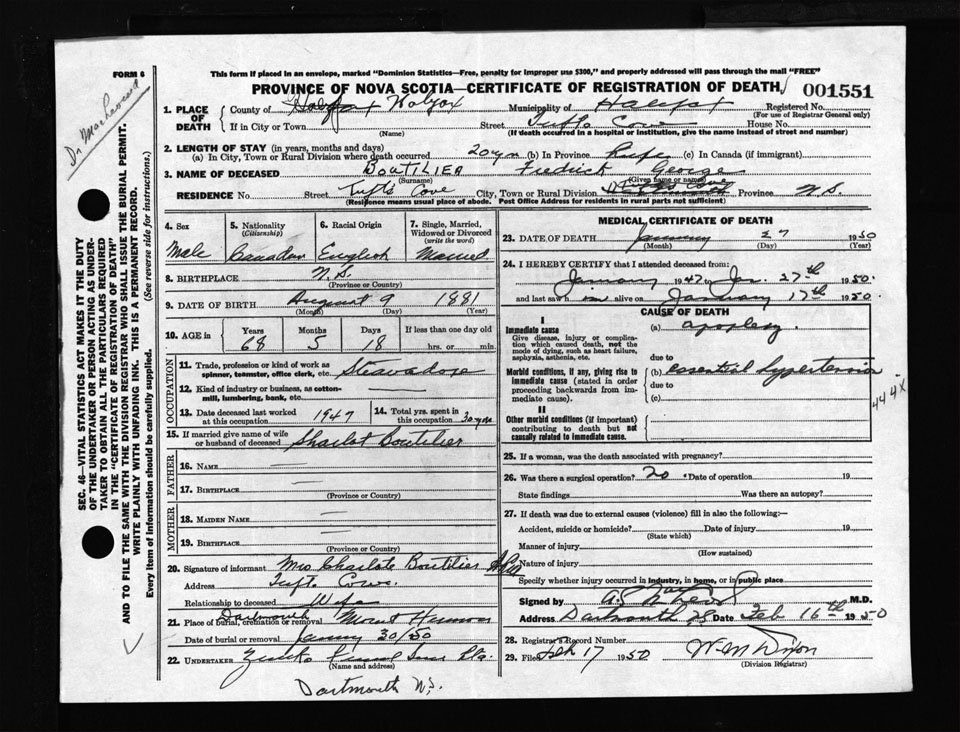 FORM 6
This form if placed in an envelope, marked "Dominion Statistics—Free, penalty for improper use $300," and properly addressed will pass through the mail "FREE"
PROVINCE OF NOVA SCOTIA—CERTIFICATE OF REGISTRATION OF DEATH, 001551
Dr
1. PLACE OF DEATH County of Halifax Municipality of Halifax Registered No.
(For use of Registrar General only)
If in City or Town Street Tufts Cove House No.
(Name) (If death occurred in a hospital or institution, give the name instead of street and number)
2. LENGTH OF STAY (in years, months and days)
(a) In City, Town or Rural Division where death occurred 20 yrs (b) In Province Life (c) In Canada (if immigrant)
3. NAME OF DECEASED BOUTILIER Fredrick George
(Surname) (Given name or names)
RESIDENCE No. Street Tufts Cove City, Town or Rural Division Province N.S.
(Residence means usual place of abode. Post Office Address for residents in rural parts not sufficient)
SEC. 46—VITAL STATISTICS ACT MAKES IT THE DUTY
OF THE UNDERTAKER OR PERSON ACTING AS UNDER-
TAKER TO OBTAIN ALL THE PARTICULARS REQUIRED
IN THE "CERTIFICATE OF REGISTRATION OF DEATH"
AND TO FILE THE SAME WITH THE DIVISION REGISTRAR WHO SHALL ISSUE THE BURIAL PERMIT.
WRITE PLAINLY WITH UNFADING INK. THIS IS A PERMANENT RECORD.
Every item of information should be carefully supplied. (See reverse side for instructions.)
4. Sex 5. Nationality (Citizenship) 6. Racial Origin 7. Single, Married, Widowed or Divorced (write the word)
Male Canadian English Married
8. BIRTHPLACE N.S.
(Province or Country)
9. DATE OF BIRTH August 9 1881
(Month) (Day) (Year)
10. AGE in Years Months Days If less than one day old
68 5 18 hrs. or min.
OCCUPATION
11. Trade, profession or kind of work as
spinner, teamster, office clerk, etc. Steavadore
12. Kind of industry or business, as cotton-
mill, lumbering, bank, etc.
13. Date deceased last worked at this occupation 1947 14. Total yrs. spent in this occupation 30 yrs
15. If married give name of wife or husband of deceased Sharlot Boutilier
FATHER
16. NAME
17. BIRTHPLACE
(Province or Country)
MOTHER
18. MAIDEN NAME
19. BIRTHPLACE
(Province or Country)
20. Signature of informant Mrs Charlote Boutilier
Address Tufts Cove.
Relationship to deceased Wife
21. Place of burial, cremation or removal Dartmouth Mount Hermon
Date of burial or removal January 30/50
22. UNDERTAKER
(Name and address)
Dartmouth N.S.
MEDICAL CERTIFICATE OF DEATH
23. DATE OF DEATH January 27 1950
(Month) (Day) (Year)
24. I HEREBY CERTIFY that I attended deceased from:
January 1947 to Jan. 27th 1950.
and last saw him alive on January 17th 1950.
CAUSE OF DEATH
I
Immediate cause (a) apoplexy.
Give disease, injury or complica-
tion which caused death, not the
mode of dying, such as heart failure,
asphyxia, asthenia, etc. due to
Morbid conditions, if any, giving rise to (b) essential hypertension
immediate cause (stated in order due to
proceeding backwards from im-
mediate cause). (c)
444X
II
Other morbid conditions (if important)
contributing to death but not
causally related to immediate cause.
25. If a woman, was the death associated with pregnancy?
26. Was there a surgical operation? no Date of operation 19
State findings Was there an autopsy?
27. If death was due to external causes (violence) fill in also the following:—
Accident, suicide or homicide? Date of injury 19
(State which)
Manner of injury
(How sustained)
Nature of injury
Specify whether injury occurred in industry, in home, or in public place
Signed by M.D.
Address Dartmouth NS Date Feb 16th 1950
28. Registrar's Record Number
29. Filed Feb 17 1950 W. M. Dixon
(Division Registrar)